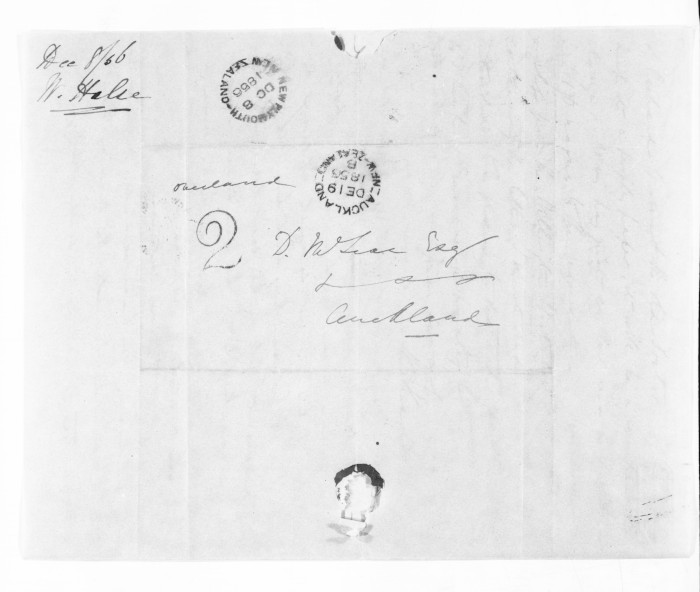 Dec 8/56
W. Halse
NEW PLYMOUTH-NEW ZEALAND
DC 8
1856
AUCKLAND-NEW-ZEALAND
DE 19
1856
B
overland
2
D. McLean Esq
Auckland